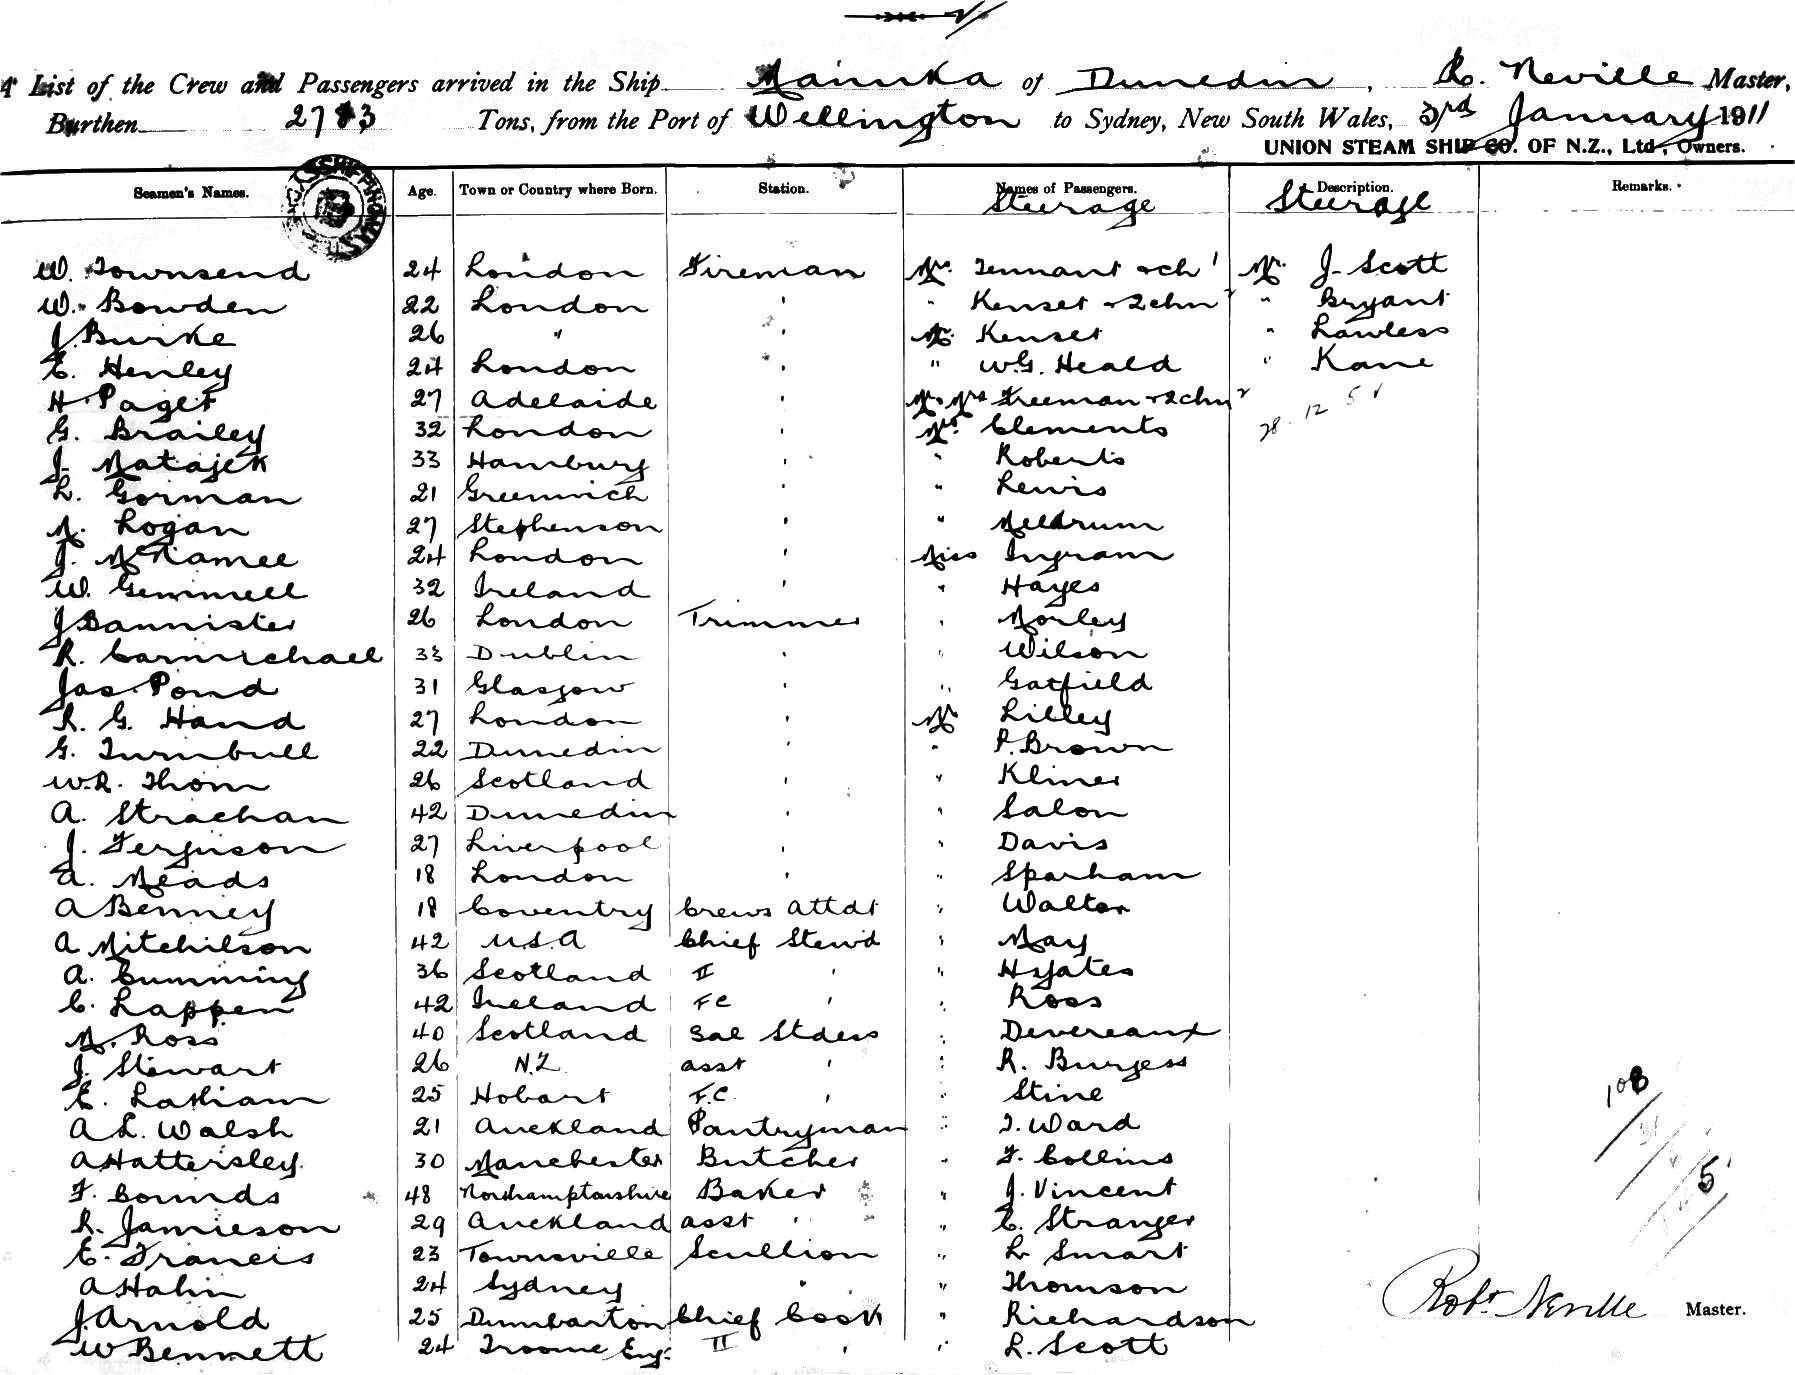 A List of the Crew and Passengers arrived in the Ship Manuka of Dunedin, R. Neville Master,
Burthen 2783 Tons, from the Port of Wellington to Sydney, New South Wales, 3rd January 1911
UNION STEAM SHIP CO. OF N.Z., Ltd., Owners.
Seamen's Names. Age. Town or Country where Born. Station. Names of Passengers. Description. Remarks.
Steerage Steerage
W. Townsend 24 London Fireman Mrs. Tennant & ch 1 Mr. J. Scott
W. Bowden 22 London ' " Kenset & 2 chn 2 " Bryant
J. Burke 26 " ' Mr. Kenset " Lawless
E. Henley 24 London ' " W.G. Heald " Kane
H. Paget 27 Adelaide ' Mr. Mrs Freeman & 2 chn 2
28 . 12 5 1
G. Brailey 32 London ' Mrs. Clements
J. Matajek 33 Hamburg ' " Roberts
L. Gorman 21 Greenwich ' " Lewis
M. Logan 27 Stephenson ' " Meldrum
J. McNamee 24 London ' Miss Ingram
W. Gemmell 32 Ireland ' " Hayes
J Bannister 26 London Trimmer " Morley
R. Carmichael 33 Dublin ' " Wilson
Jas. Pond 31 Glasgow ' " Gatfield
R. G. Hand 27 London ' Mr Lilley
G. Turnbull 22 Dunedin ' " P. Brown
W.R. Thom 26 Scotland ' " Kliner
A. Strachan 42 Dunedin ' " Salon
J. Ferguson 27 Liverpool ' " Davis
A. Meads 18 London ' " Sparham
A Benney 18 Coventry Crews Attdt " Walter
A Mitchilson 42 U.S.A Chief Stewd " May
A. Cumming 36 Scotland II ' " H Yates
C. Lappen 42 Ireland F C ' " Ross
M. Ross 40 Scotland Sal Stdess " Devereaux
J. Stewart 26 N.Z. asst ' " R. Burgess
E. Latham 25 Hobart F.C. ' " Stine
A L. Walsh 21 Auckland Pantryman " T. Ward
A Hattersley. 30 Manchester Butcher " F. Collins
F. Counds 48 Northamptonshire Baker " J. Vincent
R. Jamieson 29 Auckland asst ' " C. Stranger
E. Francis 23 Townsville Scullion " L Smart
A Hahn 24 Sydney " " Thomson
J. Arnold 25 Dumbarton Chief Cook " Richardson
W Bennett 24 Froome Eng. II ' " L. Scott
108
5
Robt Neville Master.